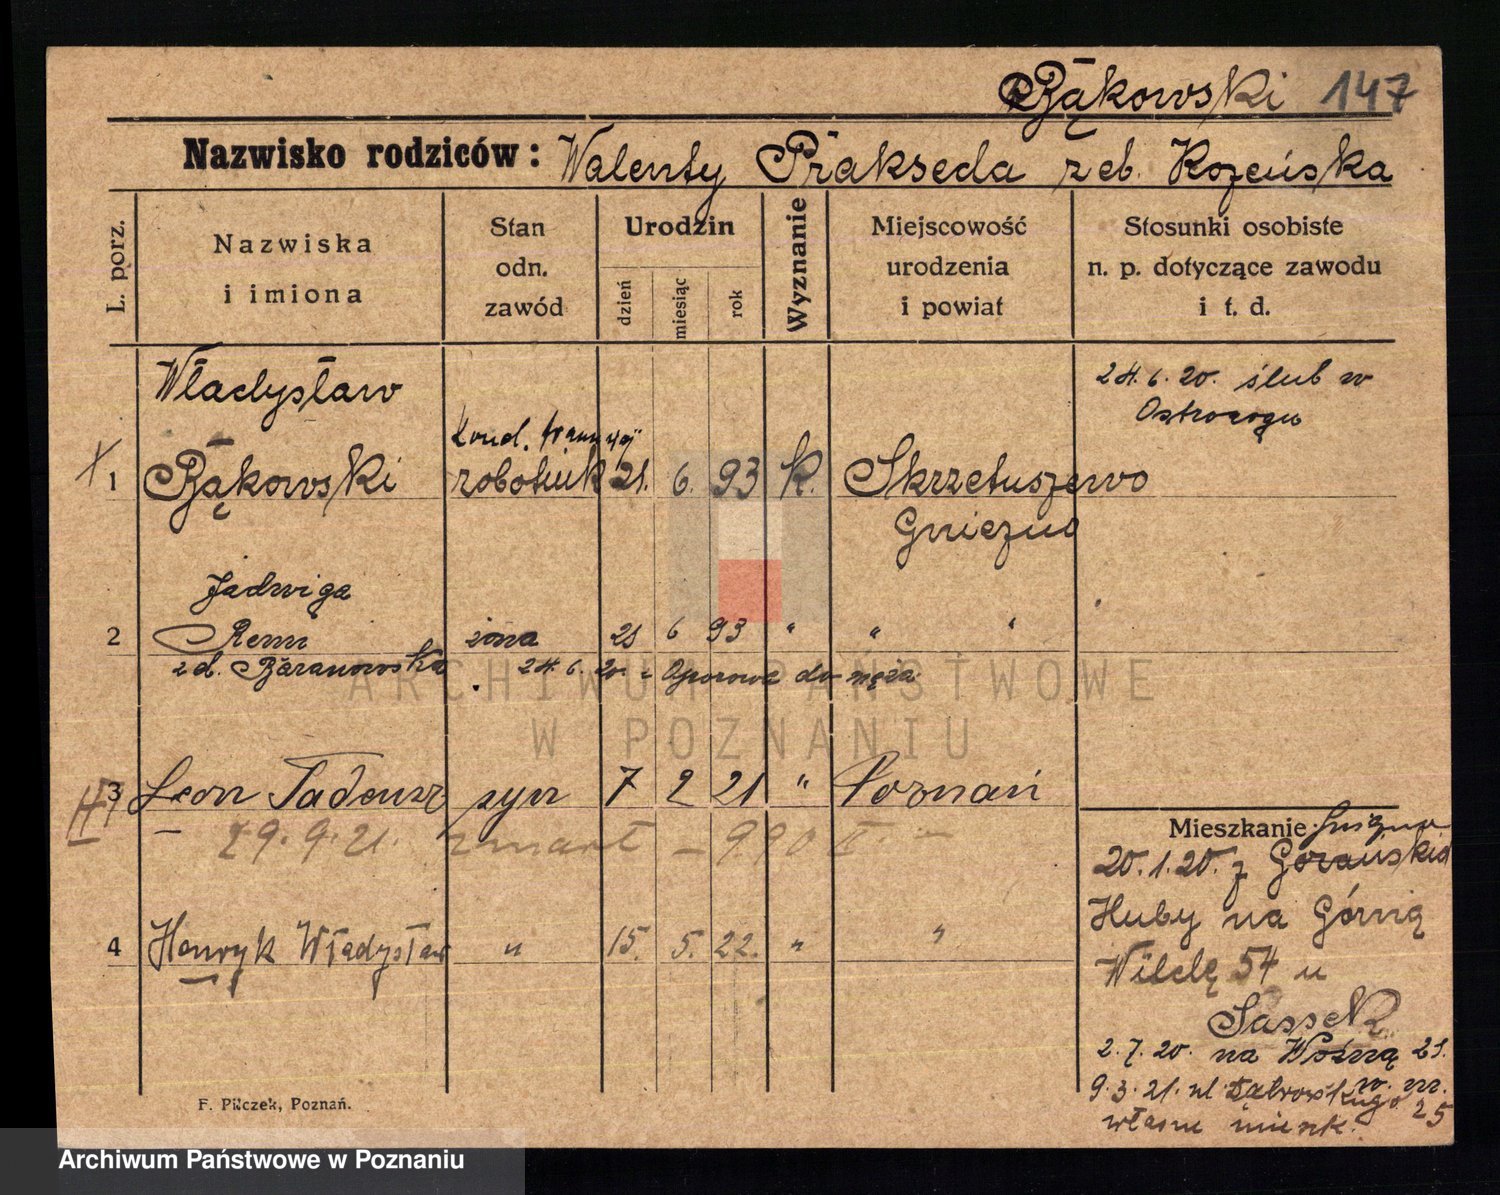 Bąkowski 147
Nazwisko rodziców: Walenty Prakseda zeb.
L. porz.
Nazwiska
i imiona
Stan
odn.
zawód
Urodzin
dzień
miesiąc
rok
Wyznanie
Miejscowość
urodzenia
i powiat
Stosunki osobiste
n. p. dotyczące zawodu
i t. d.
Władysław
24. 6. 20. ślub w
Kond. tramwaj
1 Bąkowski robotnik 21. 6. 93 k. Skrzetuszewo
Gniezno
Jadwiga
2 żona 21 6 93 " " "
zd. Baranowska 24. 6. 20. z Oporowa do męża
3 Leon Tadeusz syn 7 2 21 " Poznań
29. 9. 21. zmarł — 990 II. —
Mieszkanie: Gniezno
20. 1. 20. z
Huby na Górną
4 Henryk Władysław " 15. 5. 22. " "
Wildę 54 u
Sassek
2. 7. 20. na Woźną 21.
9. 3. 21. ul Dąbrowskiego 25
własne mieszk.
F. Pilczek, Poznań.
ARCHIWUM PAŃSTWOWE
W POZNANIU
Archiwum Państwowe w Poznaniu